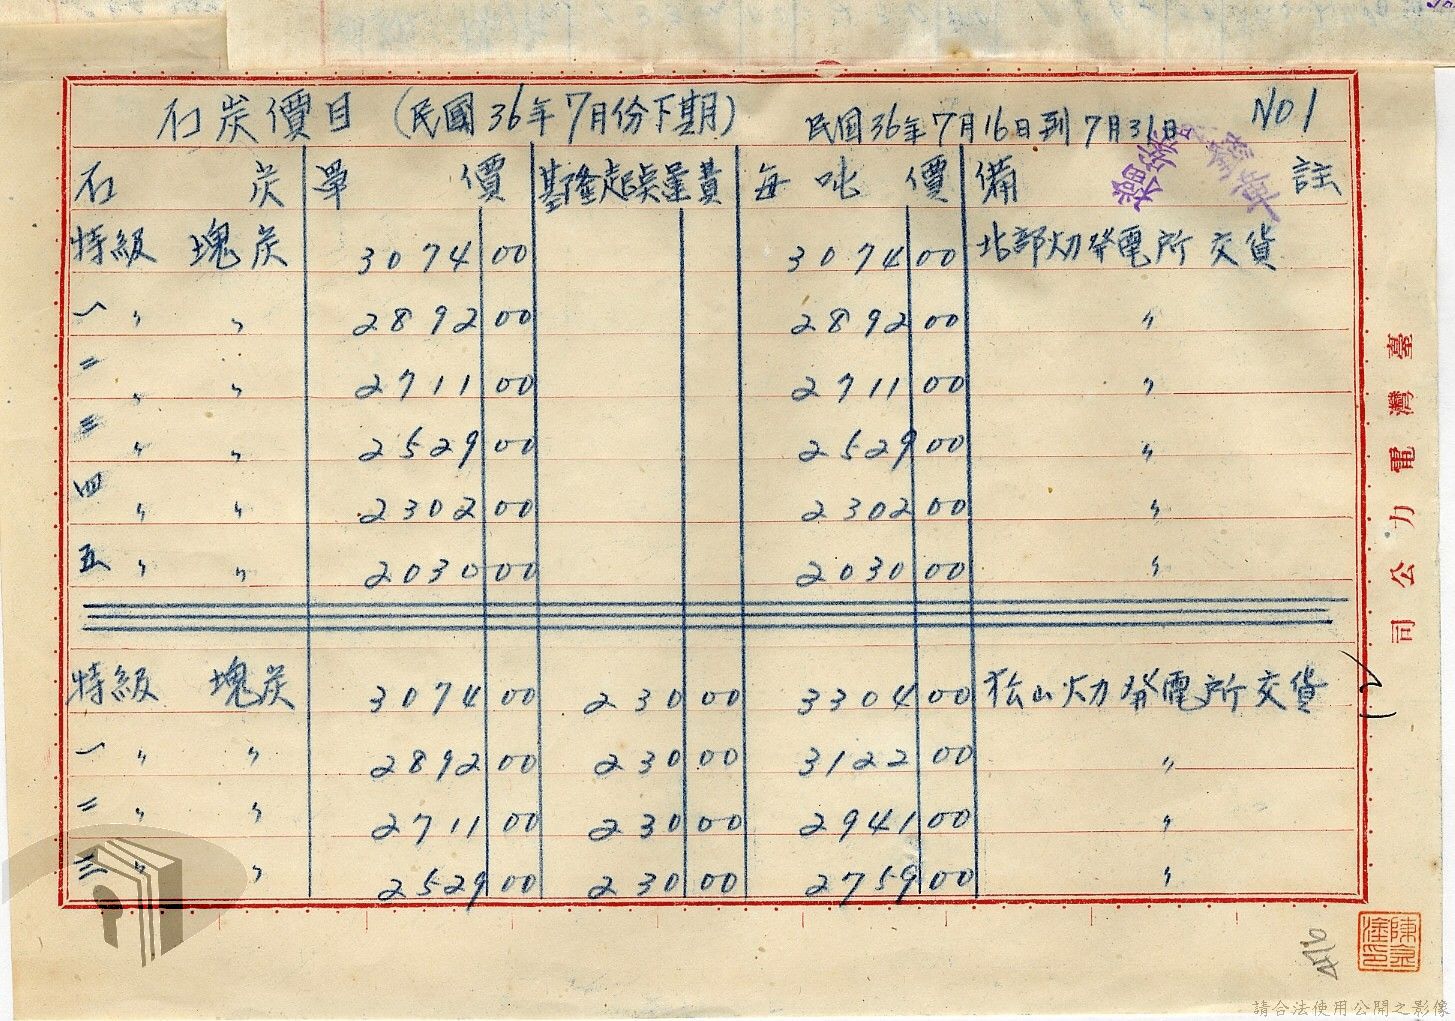 石炭價目(民國36年7月份下期) 民國36年7月16日到7月31日 NO1
石炭 單價 基隆起卸量費 每吨價 備註
特級 塊炭 3074 00 3074 00 北部火力發電所交貨
一 〃 〃 2892 00 2892 00 〃
二 〃 〃 2711 00 2711 00 〃
三 〃 〃 2529 00 2529 00 〃
四 〃 〃 2302 00 2302 00 〃
五 〃 〃 2030 00 2030 00 〃
特級 塊炭 3074 00 230 00 3304 00 松山火力發電所交貨
一 〃 〃 2892 00 230 00 3122 00 〃
二 〃 〃 2711 00 230 00 2941 00 〃
三 〃 〃 2529 00 230 00 2759 00 〃
臺灣電力公司
請合法使用公開之影像